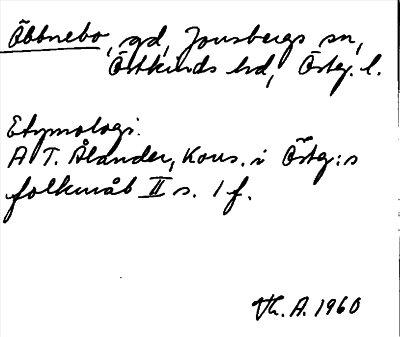 Öbbnebo, gd, Jonsbergs sn,
Östkinds hd, Östg. l.
Etymologi.
A T. Ålander, Kons. i Östg:s
folkmål II s. 1 f.
Th. A. 1960